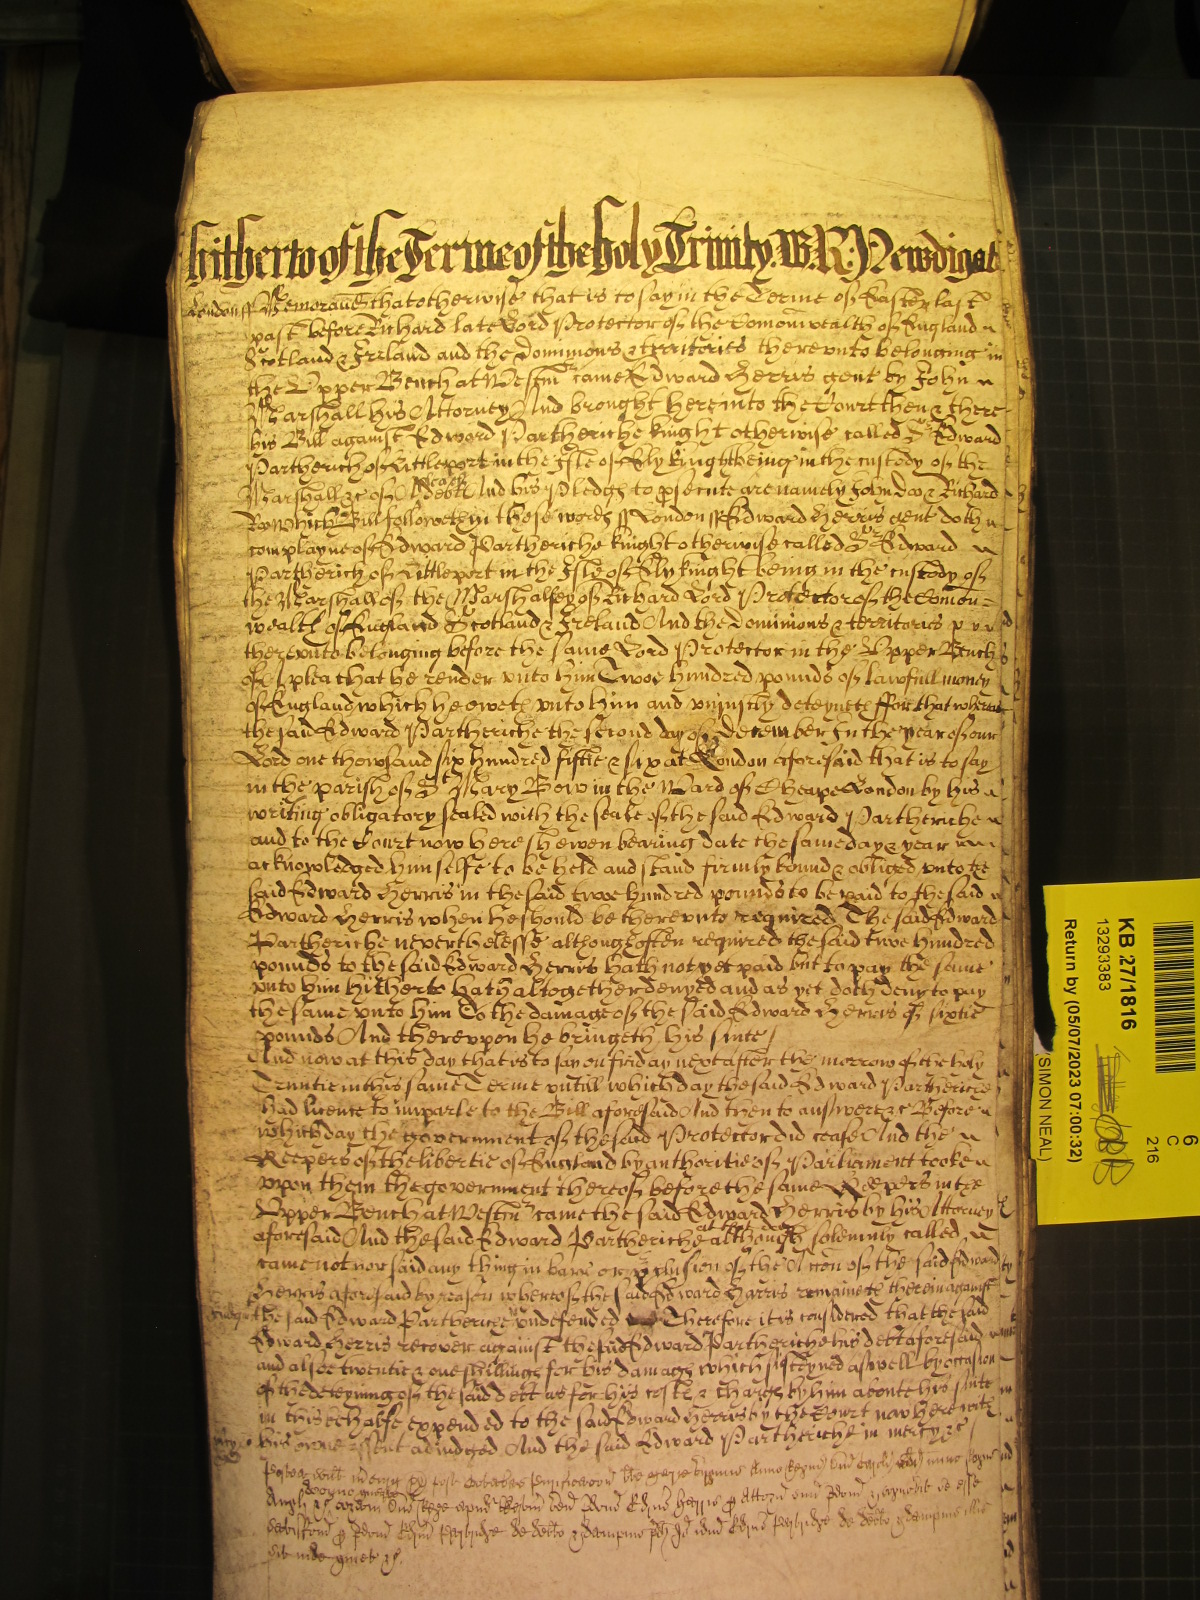 hitherto of the Terme of the holy Trinity. W.R. Newdigat
London ss Memorand that otherwise that is to say in the Terme of Easter last
past before Richard late Lord Protector of the Comonwealth of England
Scotland & Ireland and the Dominions & territories thereunto belonging in
the Upper Bench at Westm came Edward Herris gent by John
Marshall his Attorney And brought here into the Court then & there
his Bill against Edward Partheriche knight otherwise called Sr Edward
Partherich of Littleport in the Isle of Ely knight being in the custody of the
Marshall &c of A plea of debt And his Pledges to psecute are namely John Doe & Richard
Roe which Bill followeth in these words ss London ss Edward Herris gent doth
complayne of Edward Partheriche knight otherwise called Sr Edward
Partherich of Littleport in the Isle of Ely knight being in the custody of
the Marshall of the Marshalsey of Richard Lord Protector of the Comon=
wealth of England Scotland & Ireland And the Dominions & territories
thereunto belonging before the same Lord Protector in the Upper Bench
of A plea that he render unto him Twoe hundred pounds of lawfull money
of England which he oweth unto him and uniustly deteyneth ffor that whereas
the said Edward Partheriche the second day of December In the yeare of our
Lord one thowsand six hundred fiftie & six at London aforesaid that is to say
in the parish of St Mary Bow in the Ward of Cheape London by his
writing obligatory sealed with the seale of the said Edward Partheriche
and to the Court now here shewen bearing date the same day & year
acknowledged himselfe to be held and stand firmly bound & obliged unto the
said Edward Herris in the said twoe hundred pounds to be paid to the said
Edward Herris when he should be thereunto required The said Edward
Partheriche neverthelesse although often required the said twoe hundred
pounds to the said Edward Herris hath not yet paid but to pay the same
unto him hitherto hath altogether denyed and as yet doth deny to pay
the same unto him To the damage of the said Edward Herris of sixtie
pounds And thereupon he bringeth his suite /
And now at this day that is to say on friday next after the morrow of the holy
Trinitie in this same Terme untill which day the said Edward Partheriche
had licence to imparle to the Bill aforesaid And then to answere &c Before
which day the government of the said Protector did cease And the
Keepers of the libertie of England by authoritie of Parliament tooke
upon them the government thereof before the same Keepers in the
Upper Bench at Westm came the said Edward Herris by his Attorney
aforesaid And the said Edward Partheriche at that day although solemnly called
came not nor said any thing in barr or pclusion of the Accon of the said Edward
Herris aforesaid by reason whereof the said Edward Herris remaineth therein against
the said Edward Partheriche undefended Therefore it is considered that the said
Edward Herris recover against the said Edward Partheriche his debt aforesaid
and alsoe twentie & one shillings for his damages which he susteyned aswell by occasion
of the deteyning of the said debt as for his costs & charges by him aboute his suite
in this behalfe expended to the said Edward Herris by the Court now here with
his owne assent adiudged And the said Edward Partheriche in mercy &c /
KB 27/1816
13293383
Return by (05/07/2023 07:00:32)
(SIMON NEAL)
6
C
216